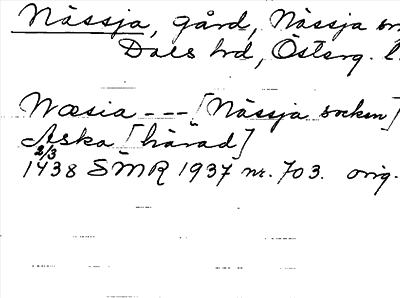 Nässja, gård, Nässja sn
Dals hd, Österg. l.
Wæsia --- [Nässja socken]
Aska [härad]
2/3
1438 SMR 1937 nr. 703. orig.